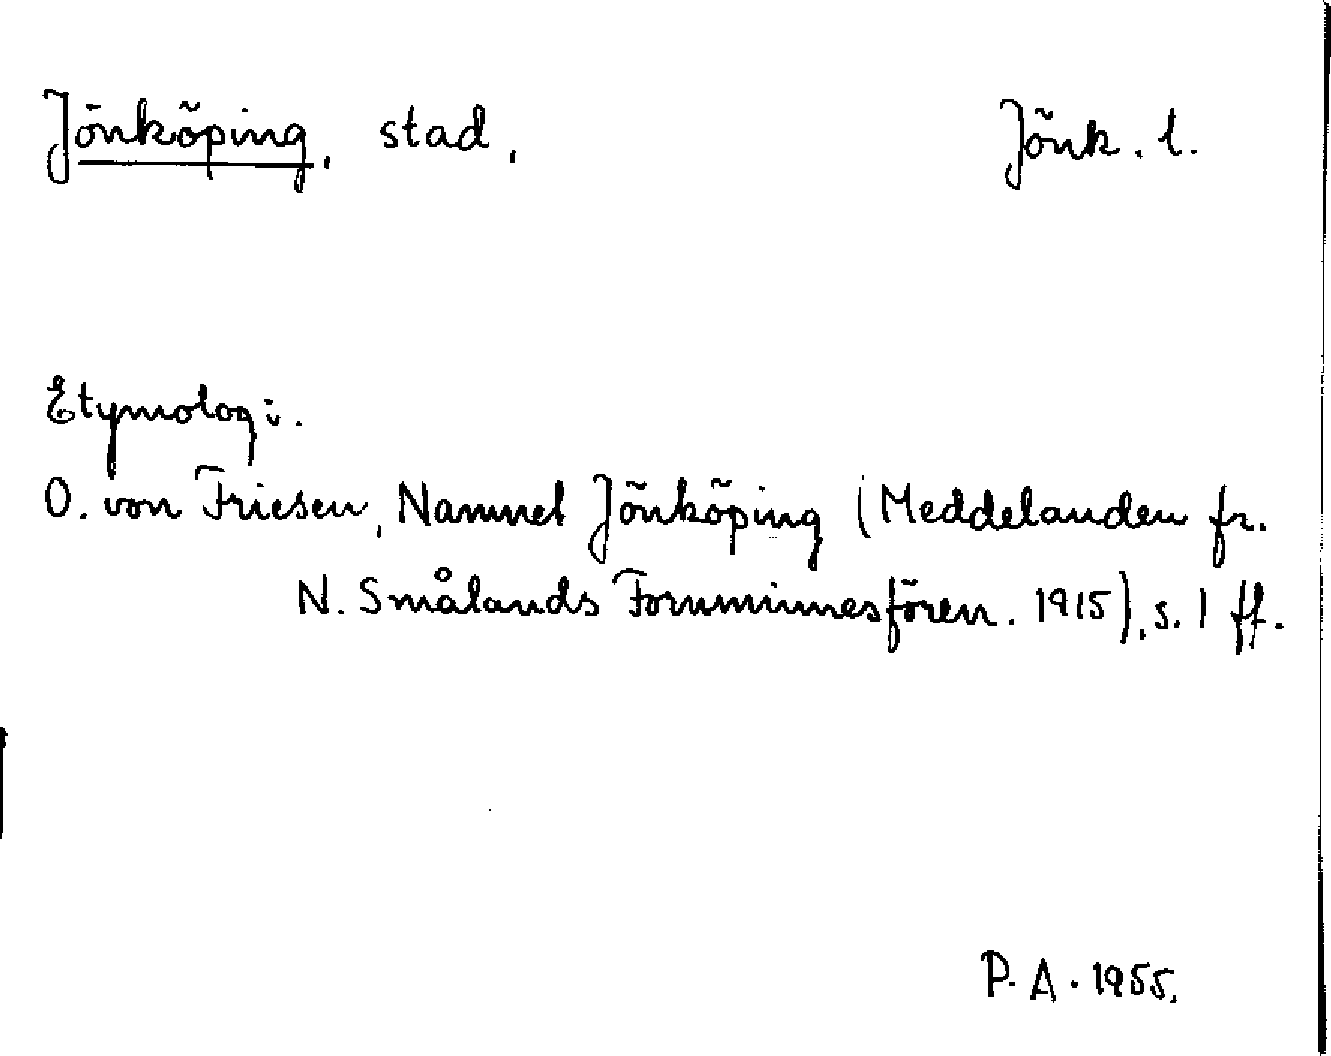 Jönköping, stad, Jönk. l.
Etymologi.
O. von Friesen, Namnet Jönköping (Meddelanden fr.
N. Smålands Fornminnesfören. 1915), s. 1 ff.
P. A. 1955.